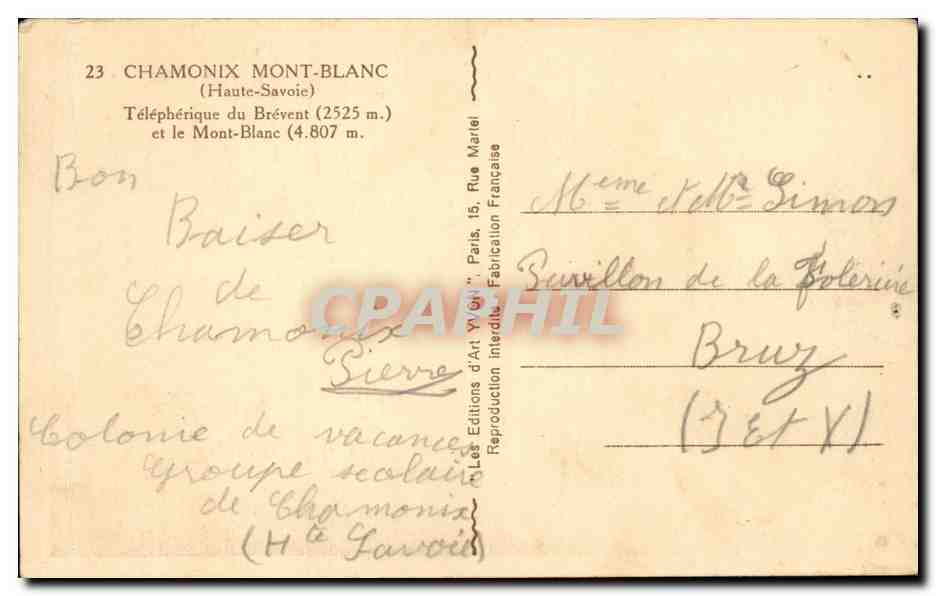 23 CHAMONIX MONT-BLANC
(Haute-Savoie)
Téléphérique du Brévent (2525 m.)
et le Mont-Blanc (4.807 m.
Bon
Baiser
de
Chamonix
Pierre
Colonie de vacances
Groupe scolaire
de Chamonix
(Hte Savoie)
"Les Editions d'Art YVON", Paris, 15, Rue Martel
Reproduction interdite - Fabrication Française
Meme et Mr Simon
Pavillon de la
Bruz
(I et V)
CPAPHIL